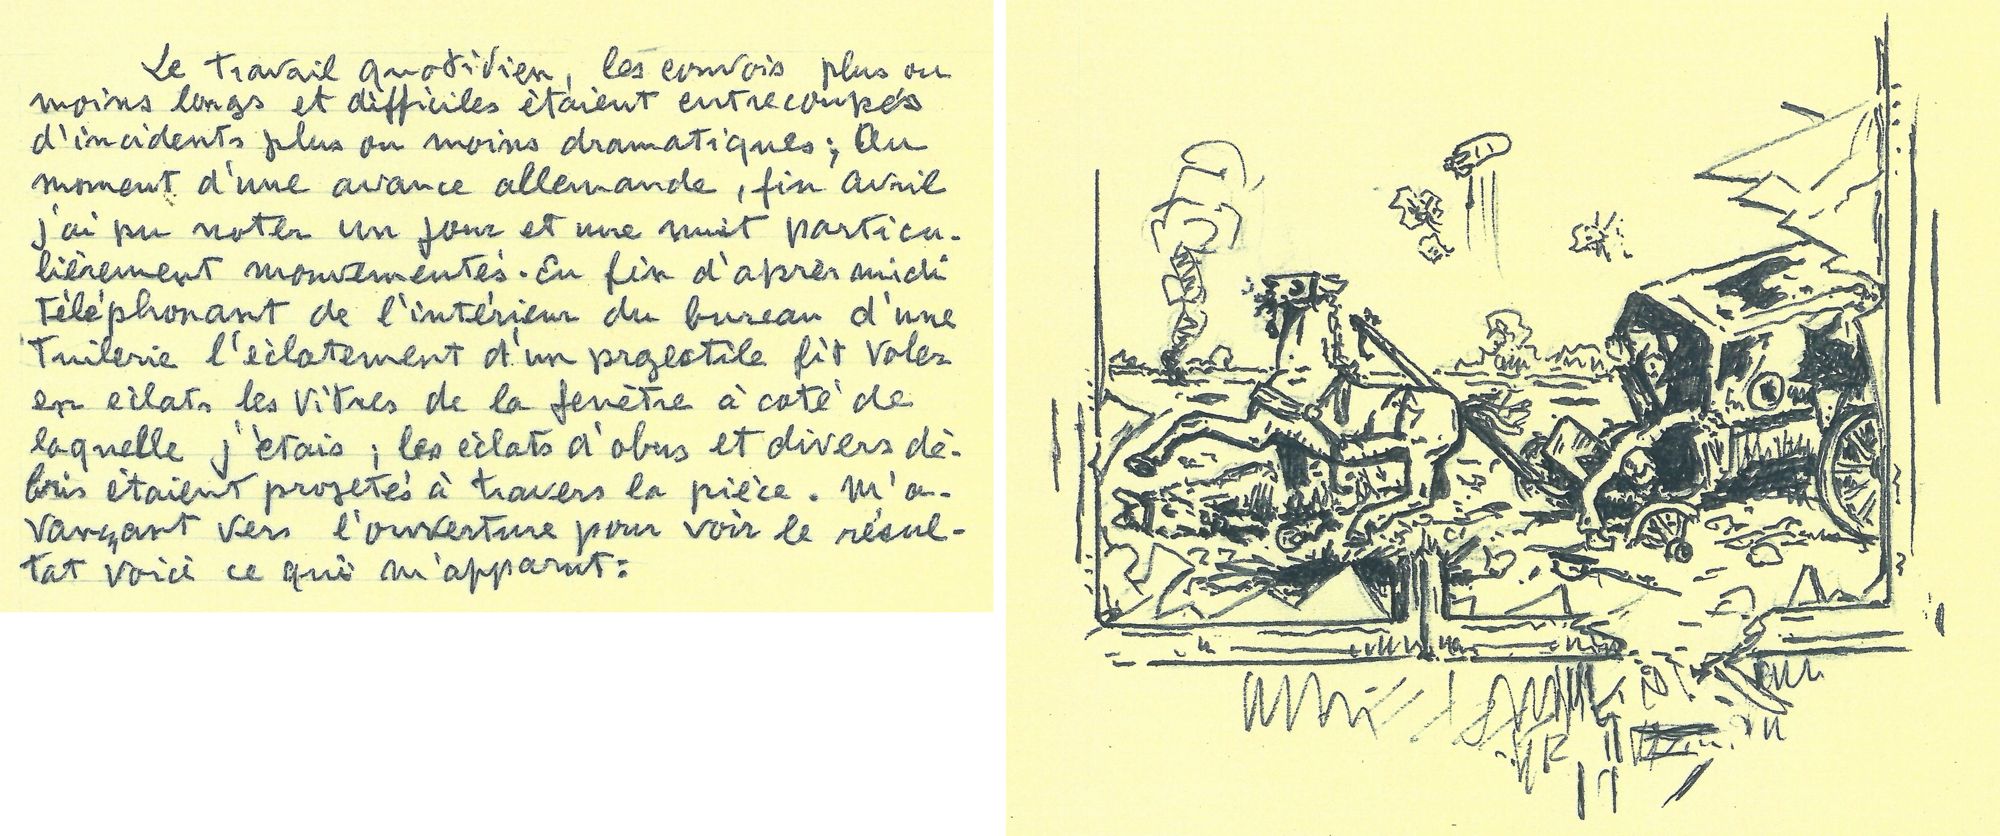 Le travail quotidien, les convois plus ou
moins longs et difficiles étaient entrecoupés
d'incidents plus ou moins dramatiques; Au
moment d'une avance allemande, fin Avril
j'ai pu noter un jour et une nuit particu-
lièrement mouvementés. En fin d'après midi
téléphonant de l'intérieur du bureau d'une
Tuilerie l'éclatement d'un projectile fit voler
en éclats les vitres de la fenêtre à coté de
laquelle j'étais; les éclats d'obus et divers dé-
bris étaient projetés à travers la pièce. M'a-
vançant vers l'ouverture pour voir le résul-
tat voici ce qui m'apparut: